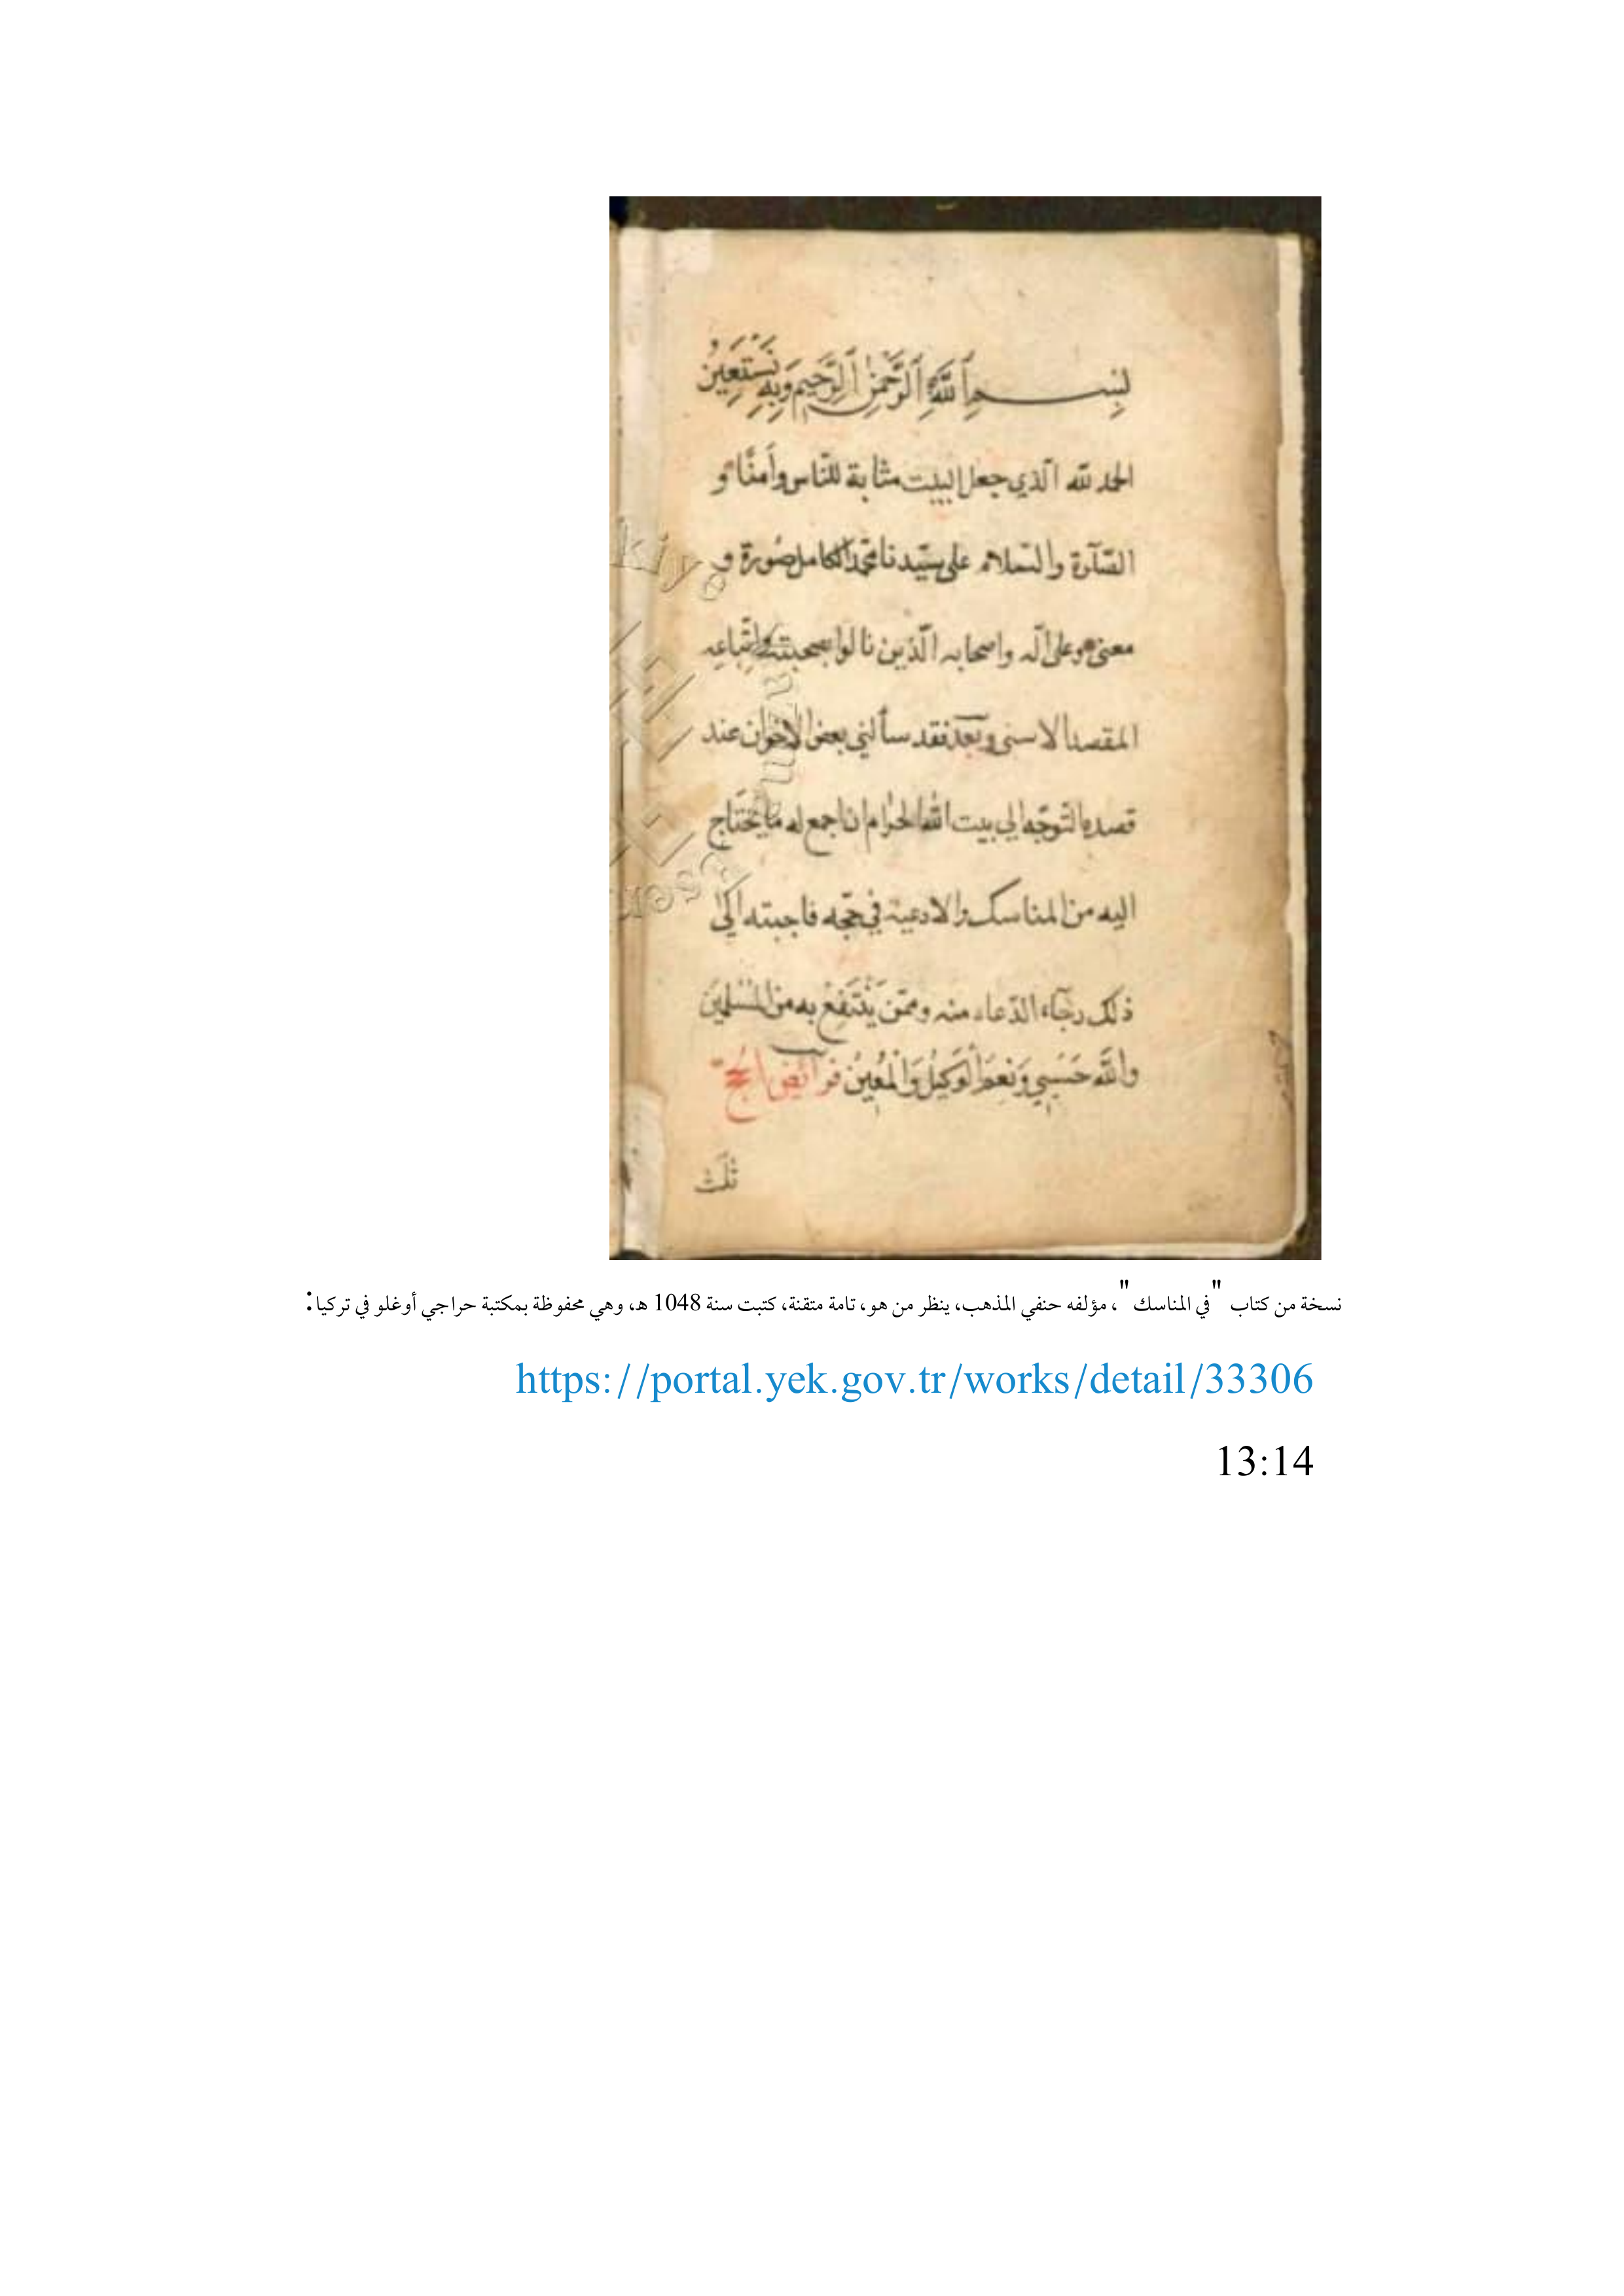 بِسْمِ ٱللَّهِ ٱلرَّحْمٰنِ ٱلرَّحِيمِ وَبِهِ نَسْتَعِينُ
الحمد لله الّذي جعل البيت مثابة للنّاس وأمنًا و
الصّلٰوة والسّلام على سيّدنا محمّد الكامل صُورة و
معنى وعلى آله واصحابه الّذين نالوا بصحبته واتّباعه
المقصد الاسنى وبعد فقد سألني بعض الاخوان عند
قصده التّوجّه الى بيت الله الحرام ان اجمع له مَا يَحْتَاج
اليه من المناسك والادعية في حجّه فاجبته الى
ذلك رجآء الدّعاء منه وممّن يَنْتَفِعْ به من المُسْلمين
وَاللّٰه حَسْبِي وَنعْمَ الْوَكِيلُ وَالْمُعِينُ فرائض الحجّ
ثَلٰث
نسخة من كتاب "في المناسك"، مؤلفه حنفي المذهب، ينظر من هو، تامة متقنة، كتبت سنة 1048 هـ، وهي محفوظة بمكتبة حراجي أوغلو في تركيا:
https://portal.yek.gov.tr/works/detail/33306
13:14